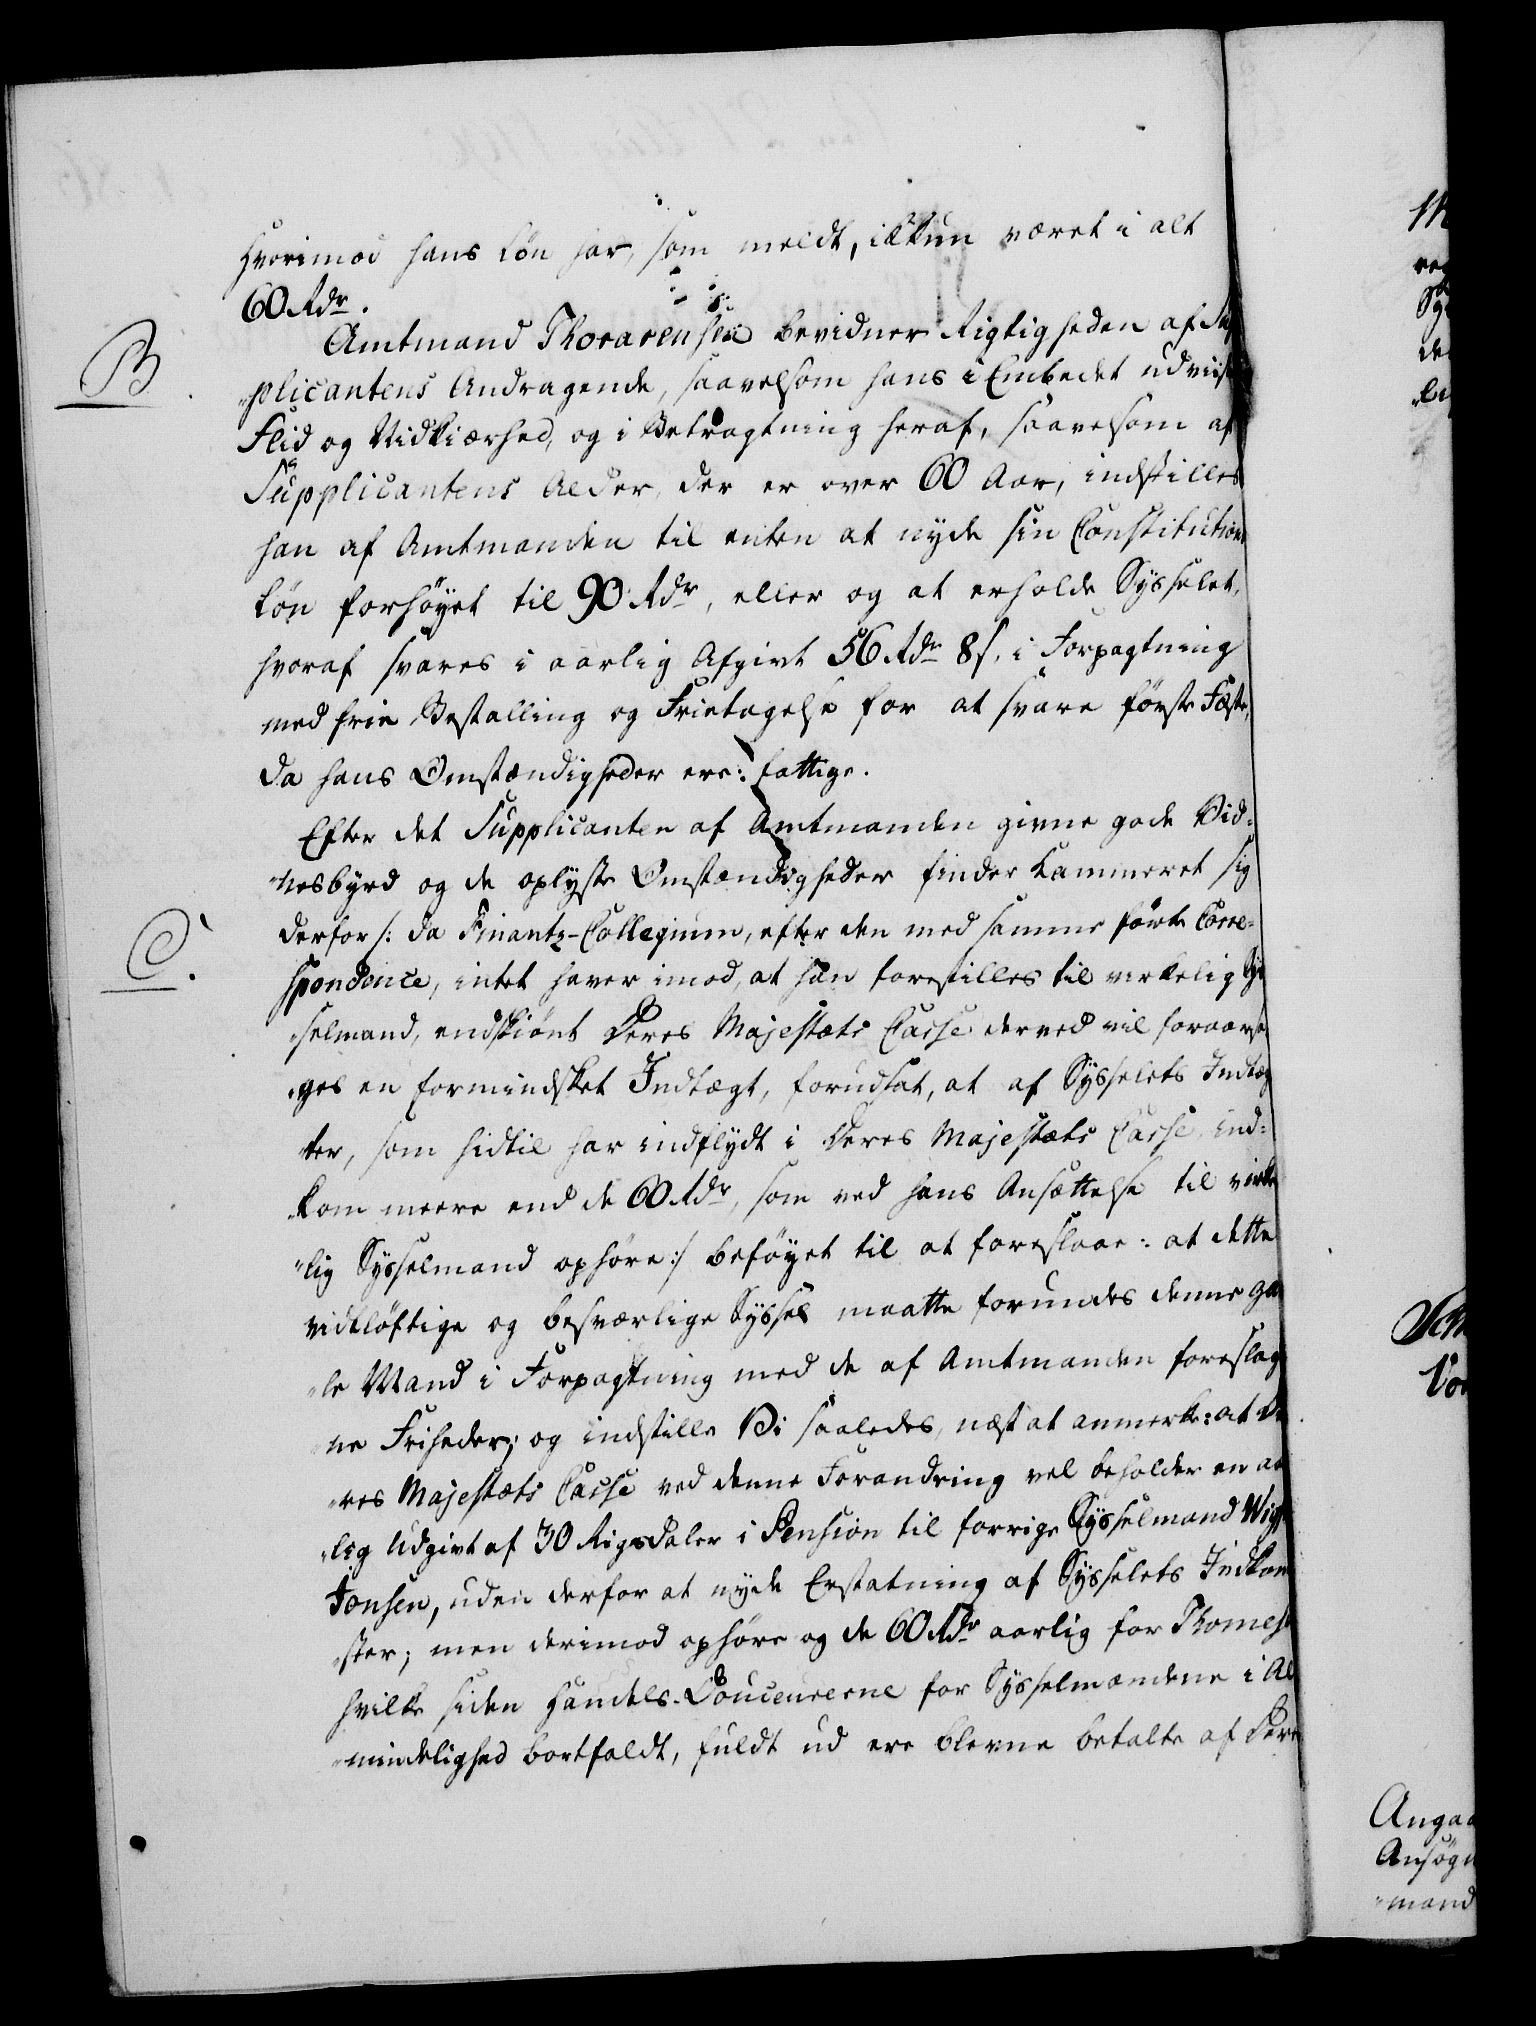 hvorimod hans Løn har, som meldt, ikkun været i alt
60 Rdr.
B.
Amtmand Thorarensen bevidner Rigtigheden af Sup
"plicantens Andragende, saavelsom hans i Embedet udviiste
Fliid og Nidkiærhed, og i Betragtning heraf, saavelsom af
Supplicantens Alder, der er over 60 Aar, indstilles
han af Amtmanden til enten at nyde sin Constitutions
Løn forhøyet til 90 Rdr, eller og at erholde Sysselet,
hvoraf svares i aarlig Afgivt 56 Rdr 8 s. i Forpagtning
med frie Bestalling og Frietagelse for at svare første Fæste,
da hans Omstændigheder ere fattige.
Efter det Supplicanten af Amtmanden givne gode Vid=
"nesbyrd og de oplyste Omstændigheder finder Kammeret sig
C.
derfor /: da Finantz-Collegium, efter den med samme førte Corre=
"spondence, intet haver imod, at han forestilles til virkelig Sys
"selmand, endskiønt Deres Majestæts Casse derved vil foraarsa
"ges en formindsket Indtægt, forudsat, at af Sysselets Indtæg
"ter, som hidtil har indflydt i Deres Majestæts Casse, ind=
"kom meere end de 60 Rdr, som ved hans Ansættelse til virke
"lig Sysselmand ophøre :/ beføyet til at foreslaae: at dette
vidtløftige og besværlige Syssel maatte forundes denne gam
"le Mand i Forpagtning med de af Amtmanden foreslag
"ne Friheder; og indstille Vi saaledes, næst at anmerke: at De
"res Majestæts Casse ved denne Forandring vel beholder en aar
"lig Udgivt af 30 Rigsdaler i Pension til forrige Sysselmand Wigf
Jonsen, uden derfor at nyde Erstatning af Sysselets Indkom
"ster; men derimod ophøre og de 60 Rdr aarlig for Thomes
hvilke siden Handels-Douceurerne for Sysselmændene i Al
"mindelighed bortfaldt, fuldt ud ere blevne betalte af Dere
Angaa
Ansøgn
"mand